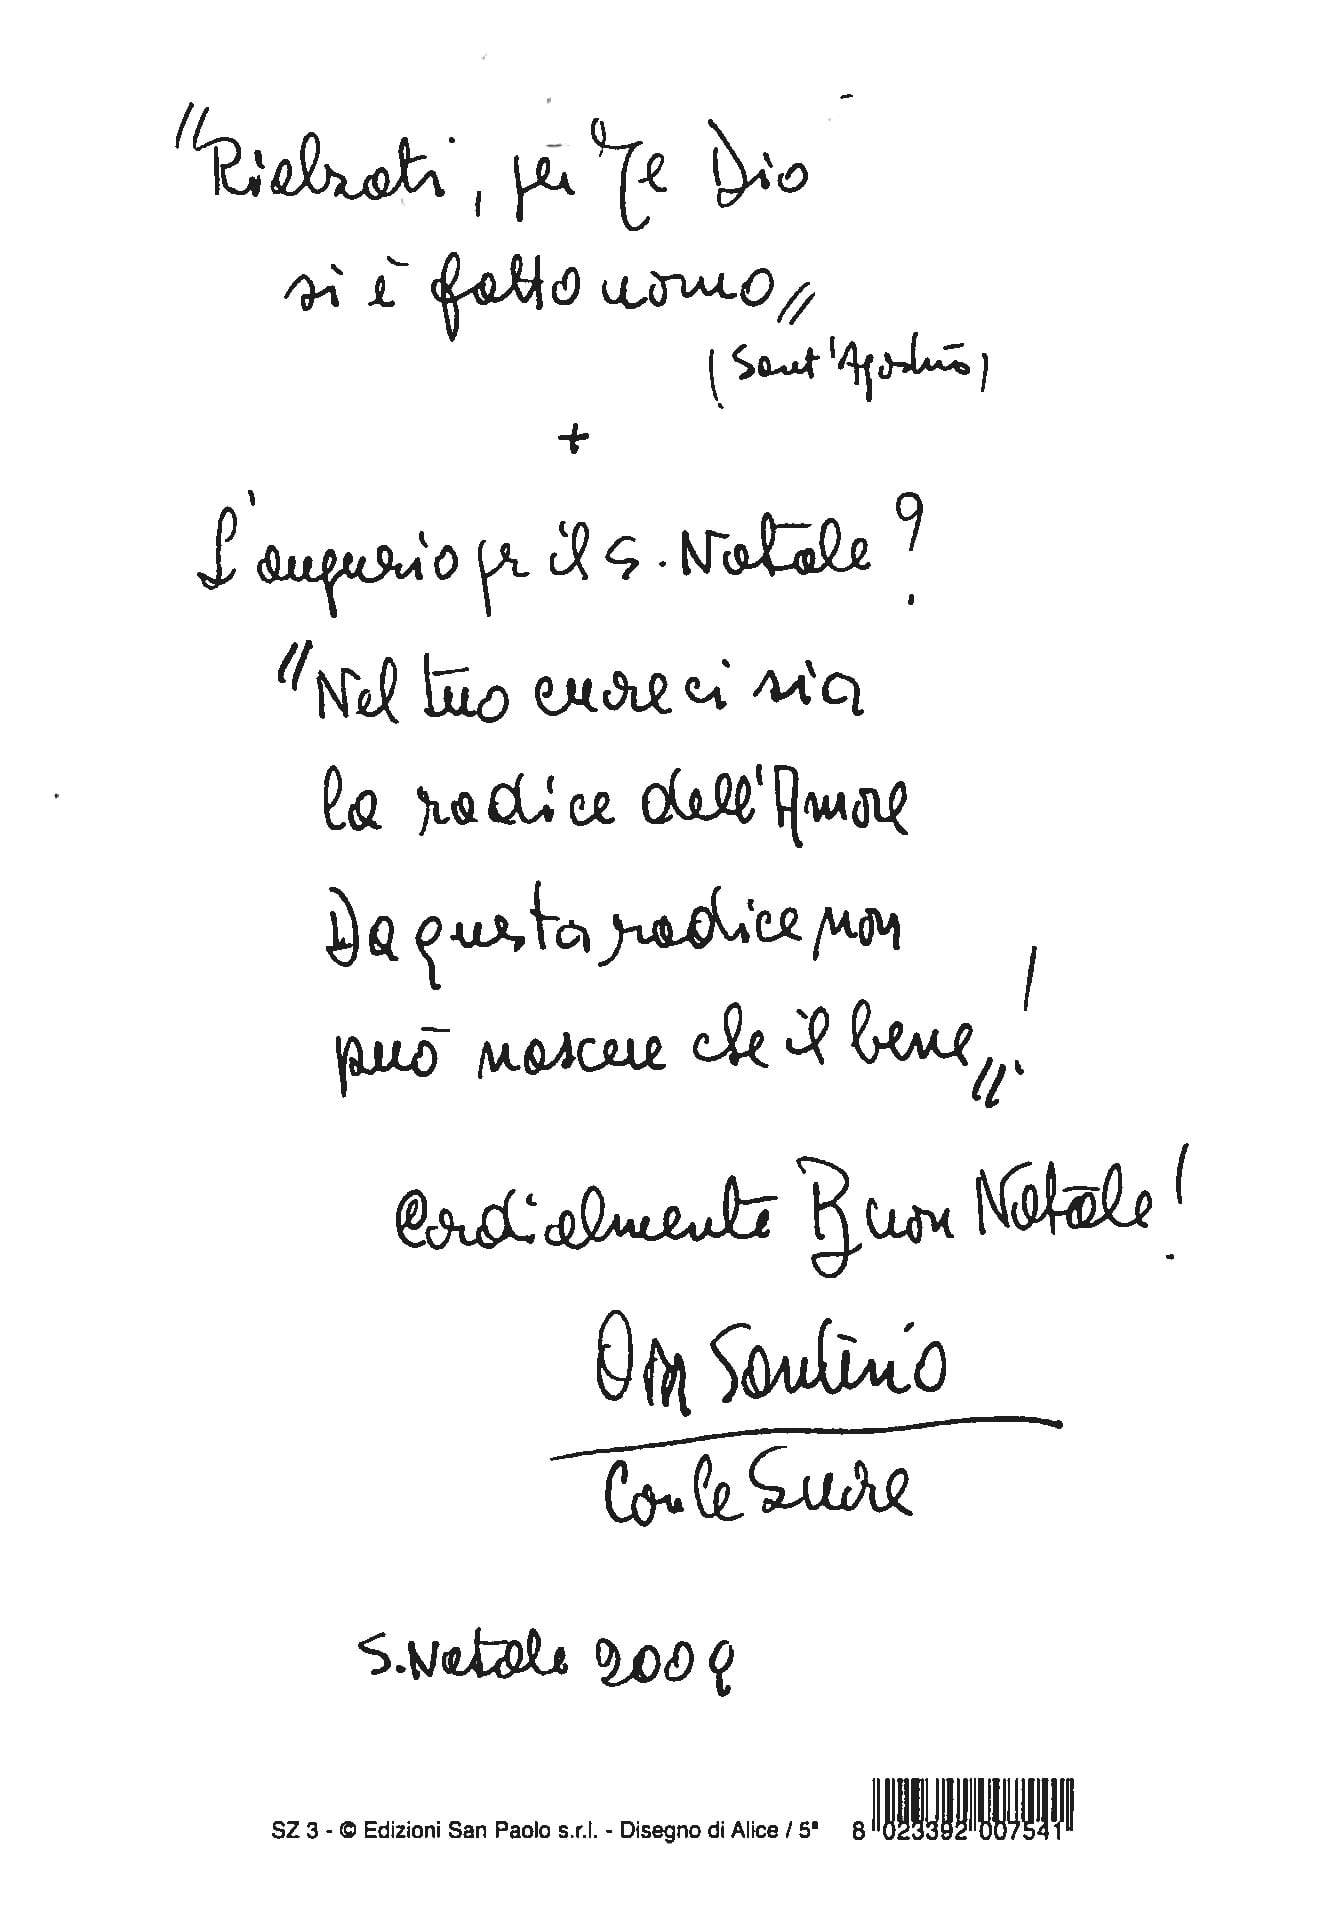 "Rialzati, per Te Dio
si è fatto uomo"
(Sant'Agostino)
+
L'augurio per il S. Natale?
"Nel tuo cuore ci sia
la radice dell'Amore
Da questa radice non
può nascere che il bene"!
Cordialmente Buon Natale!
Don Santino
con le Suore
S. Natale 2009
SZ 3 - © Edizioni San Paolo s.r.l. - Disegno di Alice / 5ª
8 023392 007541